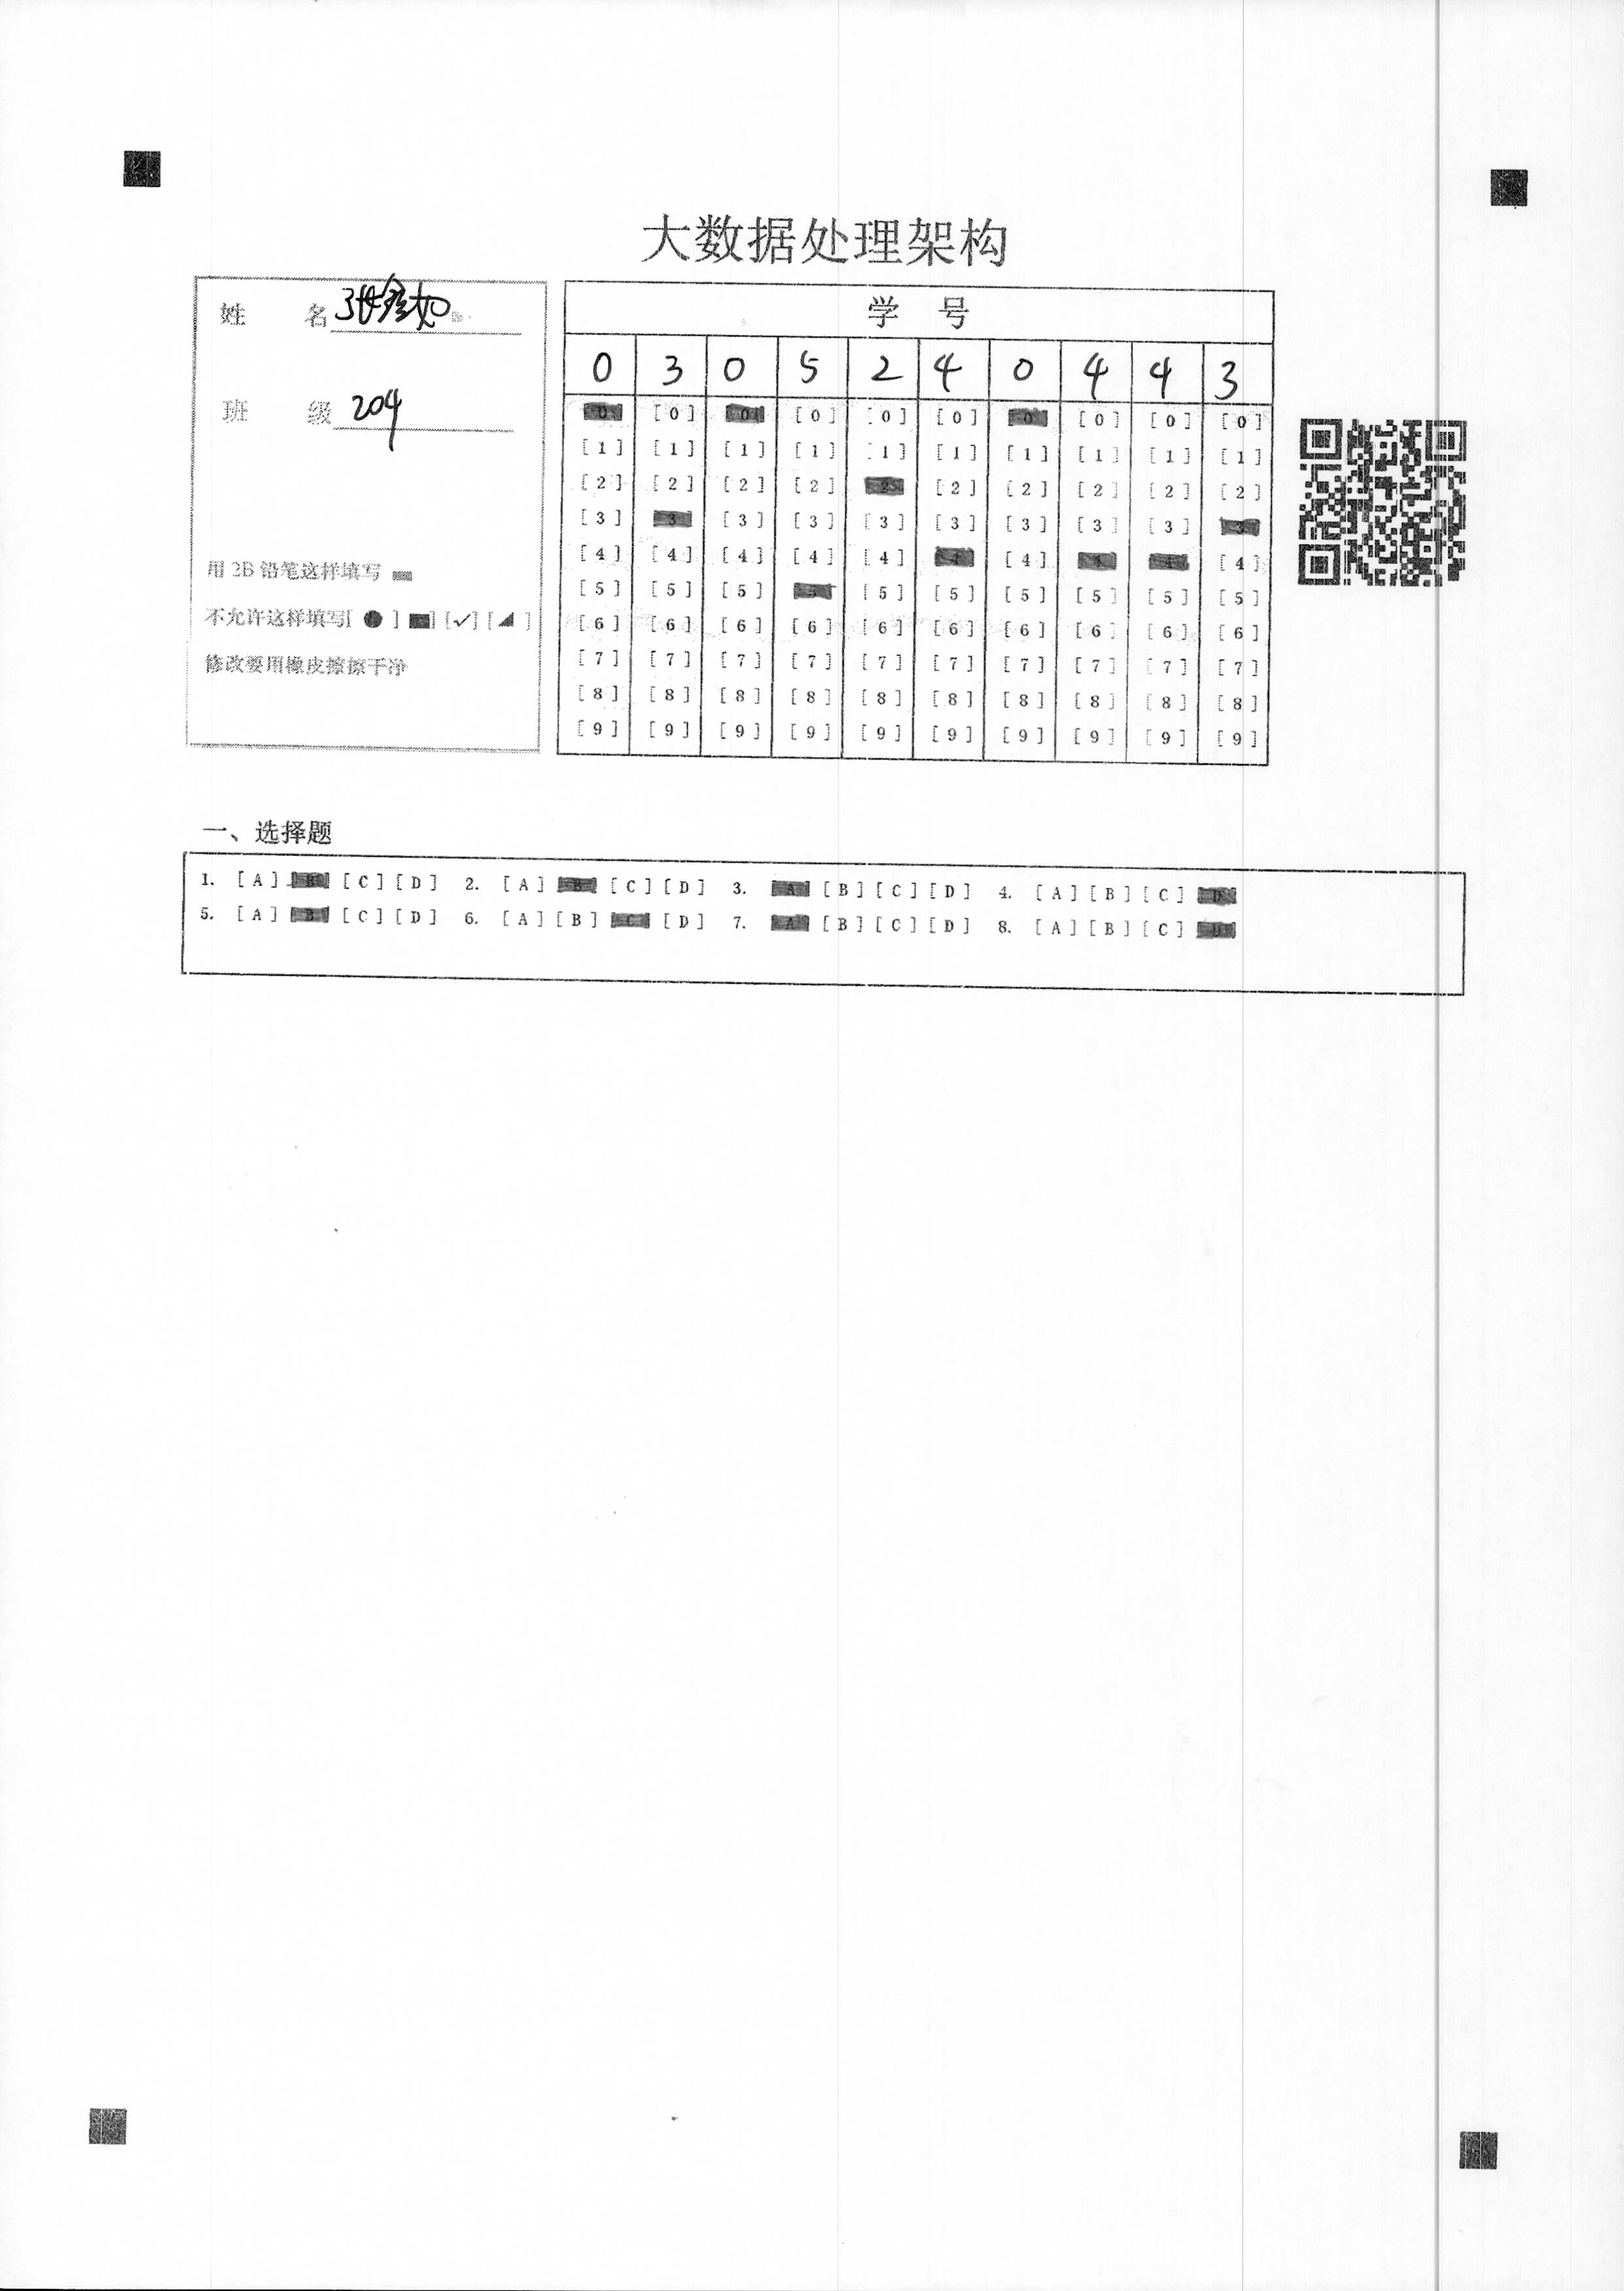 大数据处理架构
姓 名
班 级 204
用 2B 铅笔这样填写
不允许这样填写[ ● ] ■] [✓] [◢ ]
修改要用橡皮擦擦干净
学 号
0 3 0 5 2 4 0 4 4 3
[0] [0] [0] [0] [0] [0] [0] [0] [0] [0]
[1] [1] [1] [1] [1] [1] [1] [1] [1] [1]
[2] [2] [2] [2] [2] [2] [2] [2] [2] [2]
[3] [3] [3] [3] [3] [3] [3] [3] [3] [3]
[4] [4] [4] [4] [4] [4] [4] [4] [4] [4]
[5] [5] [5] [5] [5] [5] [5] [5] [5] [5]
[6] [6] [6] [6] [6] [6] [6] [6] [6] [6]
[7] [7] [7] [7] [7] [7] [7] [7] [7] [7]
[8] [8] [8] [8] [8] [8] [8] [8] [8] [8]
[9] [9] [9] [9] [9] [9] [9] [9] [9] [9]
一、选择题
1. [A] [B] [C] [D] 2. [A] [B] [C] [D] 3. [A] [B] [C] [D] 4. [A] [B] [C] [D]
5. [A] [B] [C] [D] 6. [A] [B] [C] [D] 7. [A] [B] [C] [D] 8. [A] [B] [C] [D]